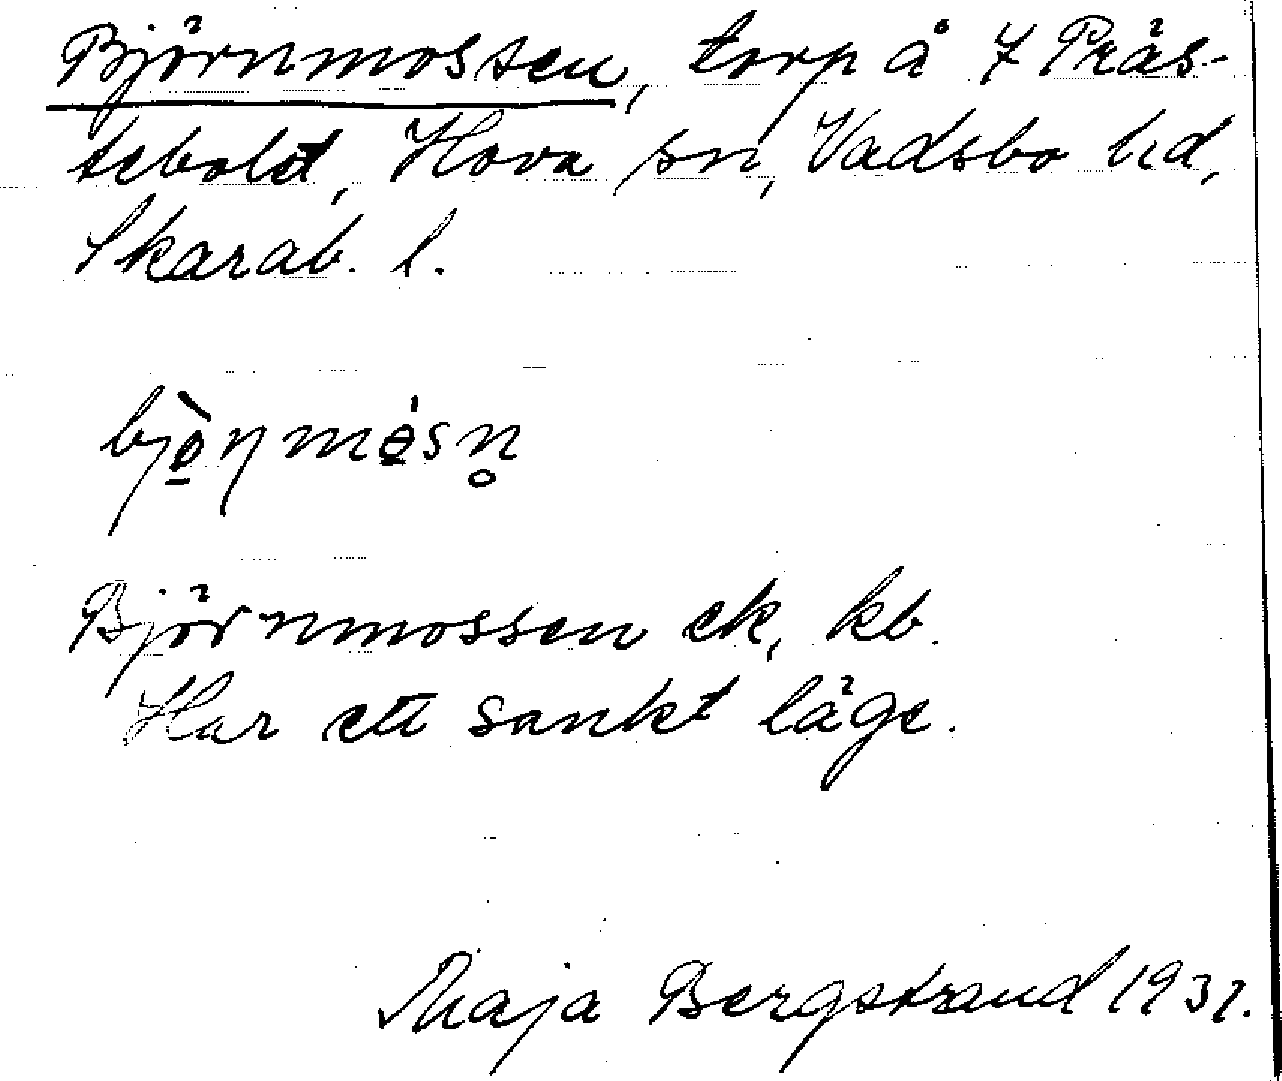 Björnmossen, torp å 7 Präs-
tebolet, Hova sn, Vadsbo hd,
Skarab. l.
Björnmossen ek, kb.
Har ett sankt läge.
Maja Bergstrand 1937.